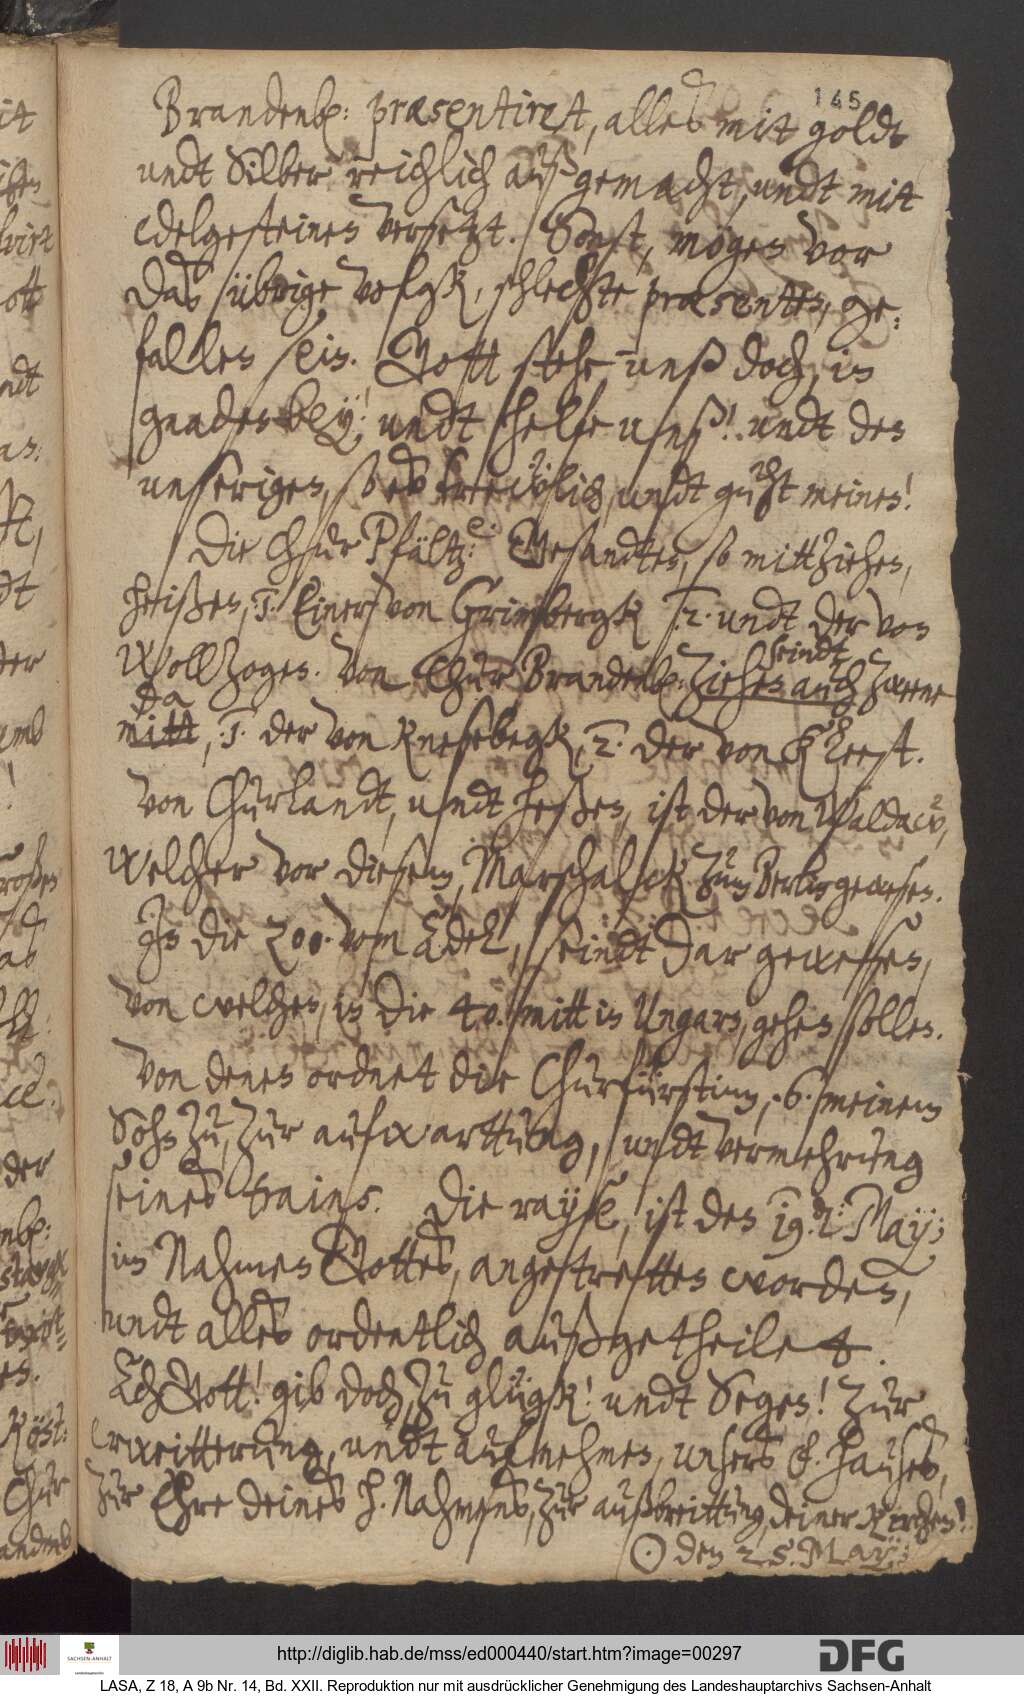 145
Brandenb: præsentiret, alles mit goldt
undt Silber reichlich außgemacht, undt mitt
edelgesteinen versetzt. Sonst, mögen vor
das übrige volgk, schlechte præsenten, ge-
fallen sein. Gott stehe unß doch, in
gnaden bey! undt helfe unß! undt den
unserigen, undt meinen!
Die Chur Pfältz: Gesandten, so mittziehen,
heißen, 1. Einer von Grimbergk 2. undt der von
Wollzogen. Von Chur Brandenb: ziehen auch seindt zweene
da
mitt, 1. der von Knesebegk, 2. der von Kleest.
Von Churlandt, undt heßen, ist der von Waldaw,
welcher vor diesem, Marschalck zum Berlin gewesen.
In die 200. vom Adel, seindt dar gewesen,
von welchen, in die 40. mitt in Ungarn, gehen sollen.
Von denen ordnet die Churfürstinn, 6. meinem
Sohn zu, zur aufwarttung, undt vermehrung
seines trains. Die rayse, ist den 19. May;
im Nahmen Gottes, angestretten worden,
undt alles ordentlich außgetheilet.
Ach Gott! gib doch, zu glügk! undt Segen! zur
erweitterung, undt aufnehmen, unsers hauses,
zur Ehre deines h. Nahmens, zur außbreittung deiner Kirchen!
☉ den 25. May;
http://diglib.hab.de/mss/ed000440/start.htm?image=00297
DFG
SACHSEN-ANHALT
LASA, Z 18, A 9b Nr. 14, Bd. XXII. Reproduktion nur mit ausdrücklicher Genehmigung des Landeshauptarchivs Sachsen-Anhalt